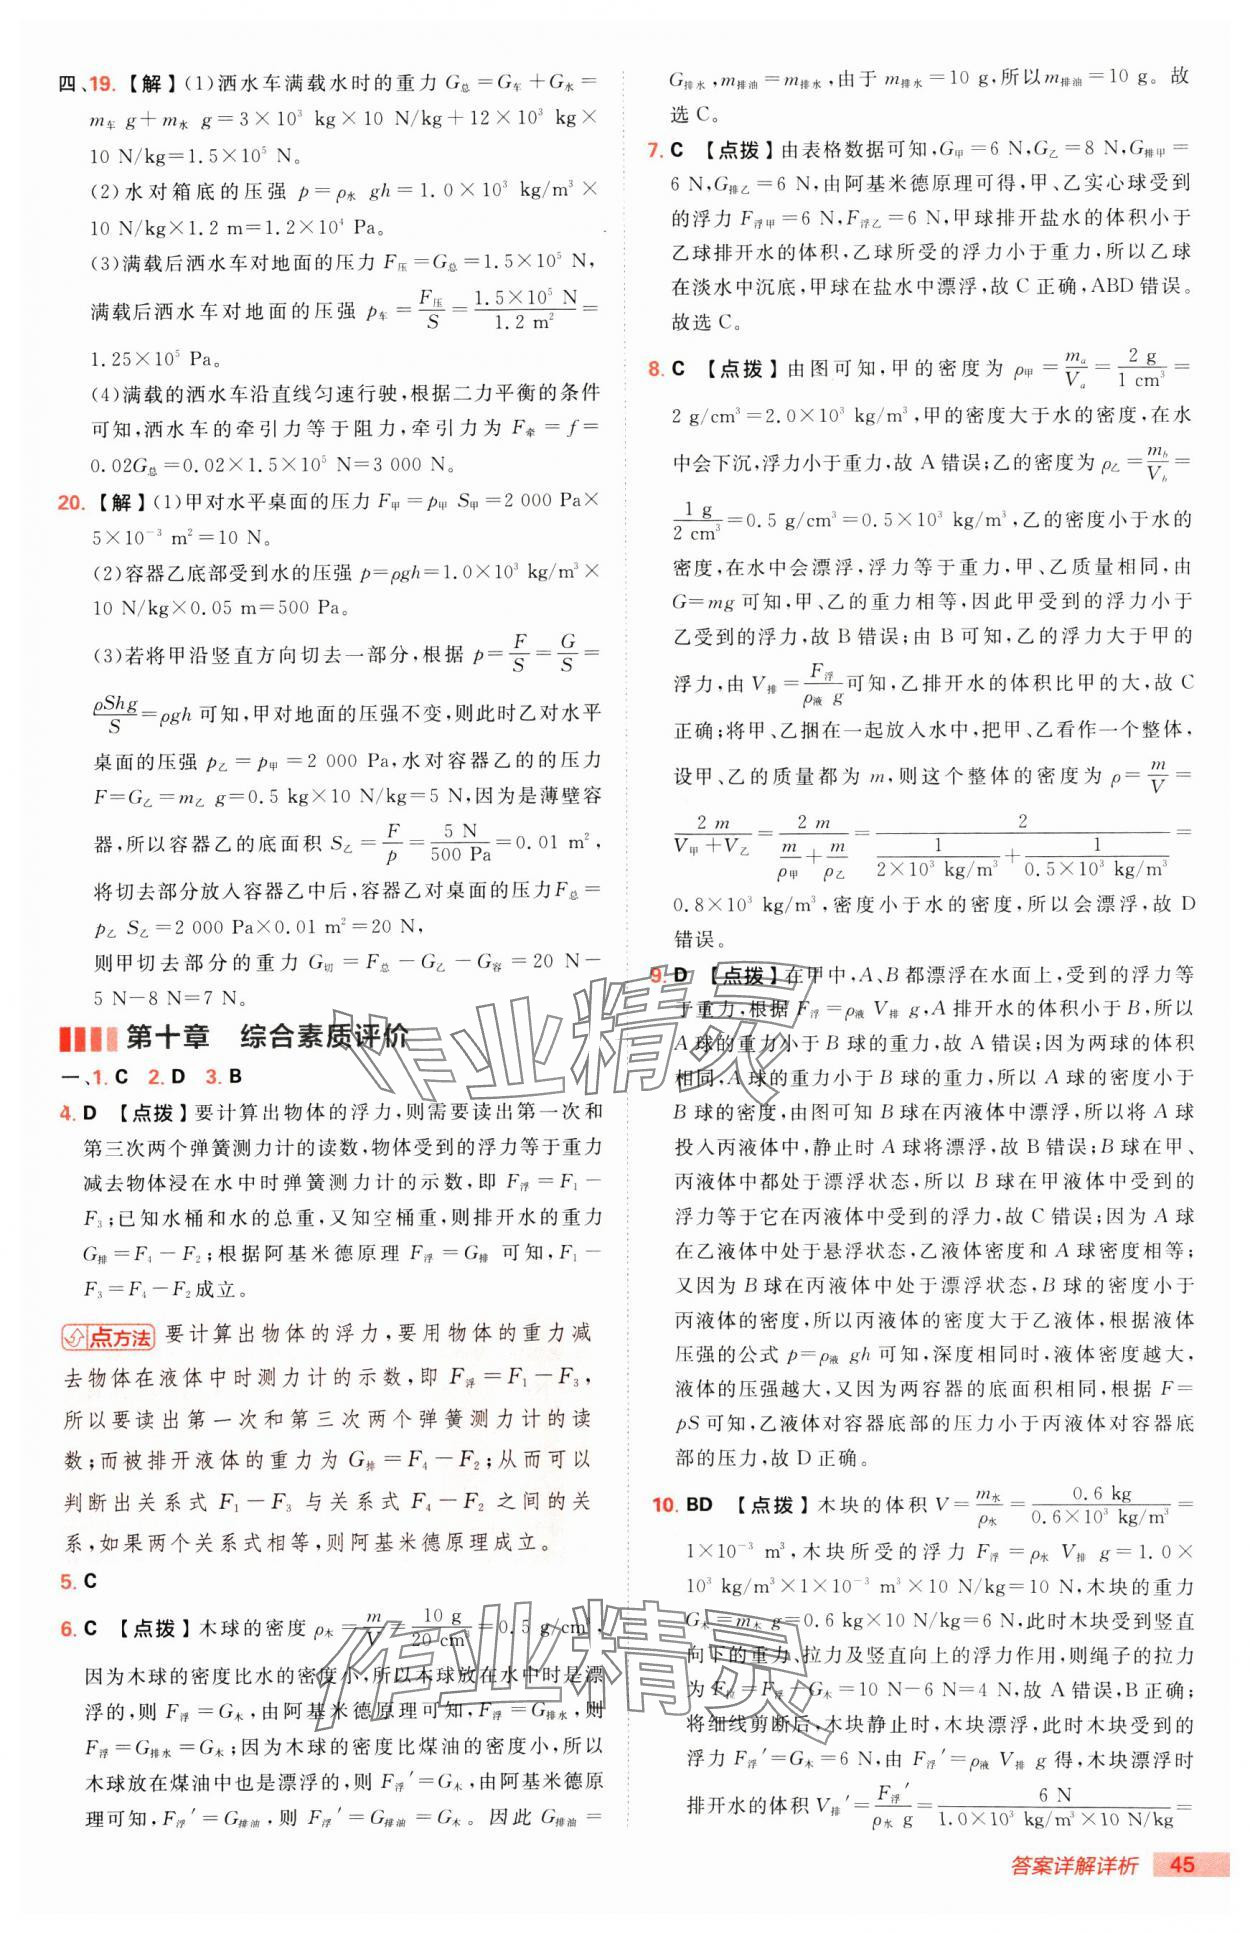 四、19.【解】(1)洒水车满载水时的重力 G总=G车+G水=
m车 g+m水 g=3×10³ kg×10 N/kg+12×10³ kg×
10 N/kg=1.5×10⁵ N。
(2)水对箱底的压强 p=ρ水 gh=1.0×10³ kg/m³×
10 N/kg×1.2 m=1.2×10⁴ Pa。
(3)满载后洒水车对地面的压力 F压=G总=1.5×10⁵ N,
满载后洒水车对地面的压强 p车=F压/S=1.5×10⁵ N/1.2 m²=
1.25×10⁵ Pa。
(4)满载的洒水车沿直线匀速行驶,根据二力平衡的条件
可知,洒水车的牵引力等于阻力,牵引力为 F牵=f=
0.02G总=0.02×1.5×10⁵ N=3 000 N。
20.【解】(1)甲对水平桌面的压力 F甲=p甲 S甲=2 000 Pa×
5×10⁻³ m²=10 N。
(2)容器乙底部受到水的压强 p=ρgh=1.0×10³ kg/m³×
10 N/kg×0.05 m=500 Pa。
(3)若将甲沿竖直方向切去一部分,根据 p=F/S=G/S=
ρShg/S=ρgh 可知,甲对地面的压强不变,则此时乙对水平
桌面的压强 p乙=p甲=2 000 Pa,水对容器乙的的压力
F=G乙=m乙 g=0.5 kg×10 N/kg=5 N,因为是薄壁容
器,所以容器乙的底面积 S乙=F/p=5 N/500 Pa=0.01 m²,
将切去部分放入容器乙中后,容器乙对桌面的压力F总=
p乙 S乙=2 000 Pa×0.01 m²=20 N,
则甲切去部分的重力 G切=F总-G乙-G容=20 N-
5 N-8 N=7 N。
第十章 综合素质评价
一、1. C 2. D 3. B
4. D 【点拨】要计算出物体的浮力,则需要读出第一次和
第三次两个弹簧测力计的读数,物体受到的浮力等于重力
减去物体浸在水中时弹簧测力计的示数,即 F浮=F₁-
F₃;已知水桶和水的总重,又知空桶重,则排开水的重力
G排=F₄-F₂;根据阿基米德原理 F浮=G排 可知,F₁-
F₃=F₄-F₂成立。
点方法 要计算出物体的浮力,要用物体的重力减
去物体在液体中时测力计的示数,即 F浮=F₁-F₃,
所以要读出第一次和第三次两个弹簧测力计的读
数;而被排开液体的重力为 G排=F₄-F₂;从而可以
判断出关系式 F₁-F₃ 与关系式 F₄-F₂ 之间的关
系,如果两个关系式相等,则阿基米德原理成立。
5. C
6. C 【点拨】木球的密度 ρ木=m/V=10 g/20 cm³=0.5 g/cm³,
因为木球的密度比水的密度小,所以木球放在水中时是漂
浮的,则 F浮=G木,由阿基米德原理可知,F浮=G排水,则
F浮=G排水=G木;因为木球的密度比煤油的密度小,所以
木球放在煤油中也是漂浮的,则 F浮′=G木,由阿基米德原
理可知,F浮′=G排油,则 F浮′=G排油=G木。因此 G排油=
G排水,m排油=m排水,由于 m排水=10 g,所以m排油=10 g。故
选 C。
7. C 【点拨】由表格数据可知,G甲=6 N,G乙=8 N,G排甲=
6 N,G排乙=6 N,由阿基米德原理可得,甲、乙实心球受到
的浮力 F浮甲=6 N,F浮乙=6 N,甲球排开盐水的体积小于
乙球排开水的体积,乙球所受的浮力小于重力,所以乙球
在淡水中沉底,甲球在盐水中漂浮,故 C 正确,ABD 错误。
故选 C。
8. C 【点拨】由图可知,甲的密度为 ρ甲=mₐ/Vₐ=2 g/1 cm³=
2 g/cm³=2.0×10³ kg/m³,甲的密度大于水的密度,在水
中会下沉,浮力小于重力,故 A 错误;乙的密度为 ρ乙=m_b/V_b=
1 g/2 cm³=0.5 g/cm³=0.5×10³ kg/m³,乙的密度小于水的
密度,在水中会漂浮,浮力等于重力,甲、乙质量相同,由
G=mg 可知,甲、乙的重力相等,因此甲受到的浮力小于
乙受到的浮力,故 B 错误;由 B 可知,乙的浮力大于甲的
浮力,由 V排=F浮/ρ液 g可知,乙排开水的体积比甲的大,故 C
正确;将甲、乙捆在一起放入水中,把甲、乙看作一个整体,
设甲、乙的质量都为 m,则这个整体的密度为 ρ=m/V=
2 m/(V甲+V乙)=2 m/(m/ρ甲+m/ρ乙)=2/(1/(2×10³ kg/m³)+1/(0.5×10³ kg/m³))=
0.8×10³ kg/m³,密度小于水的密度,所以会漂浮,故 D
错误。
9. D 【点拨】在甲中,A、B都漂浮在水面上,受到的浮力等
于重力,根据 F浮=ρ液 V排 g,A 排开水的体积小于 B,所以
A 球的重力小于 B 球的重力,故 A 错误;因为两球的体积
相同,A 球的重力小于 B 球的重力,所以 A 球的密度小于
B 球的密度,由图可知 B 球在丙液体中漂浮,所以将 A 球
投入丙液体中,静止时 A 球将漂浮,故 B 错误;B 球在甲、
丙液体中都处于漂浮状态,所以 B 球在甲液体中受到的
浮力等于它在丙液体中受到的浮力,故 C 错误;因为 A 球
在乙液体中处于悬浮状态,乙液体密度和 A 球密度相等;
又因为 B 球在丙液体中处于漂浮状态,B 球的密度小于
丙液体的密度,所以丙液体的密度大于乙液体,根据液体
压强的公式 p=ρ液 gh 可知,深度相同时,液体密度越大,
液体的压强越大,又因为两容器的底面积相同,根据 F=
pS 可知,乙液体对容器底部的压力小于丙液体对容器底
部的压力,故 D 正确。
10. BD 【点拨】木块的体积 V=m水/ρ水=0.6 kg/0.6×10³ kg/m³=
1×10⁻³ m³,木块所受的浮力 F浮=ρ水 V排 g=1.0×
10³ kg/m³×1×10⁻³ m³×10 N/kg=10 N,木块的重力
G木=m木 g=0.6 kg×10 N/kg=6 N,此时木块受到竖直
向下的重力、拉力及竖直向上的浮力作用,则绳子的拉力
为 F拉=F浮-G木=10 N-6 N=4 N,故 A 错误,B 正确;
将细线剪断后,木块静止时,木块漂浮,此时木块受到的
浮力 F浮′=G木=6 N,由 F浮′=ρ液 V排 g 得,木块漂浮时
排开水的体积 V排′=F浮′/ρ水 g=6 N/1.0×10³ kg/m³×10 N/kg=
答案详解详析 45
作业精灵
作业精灵